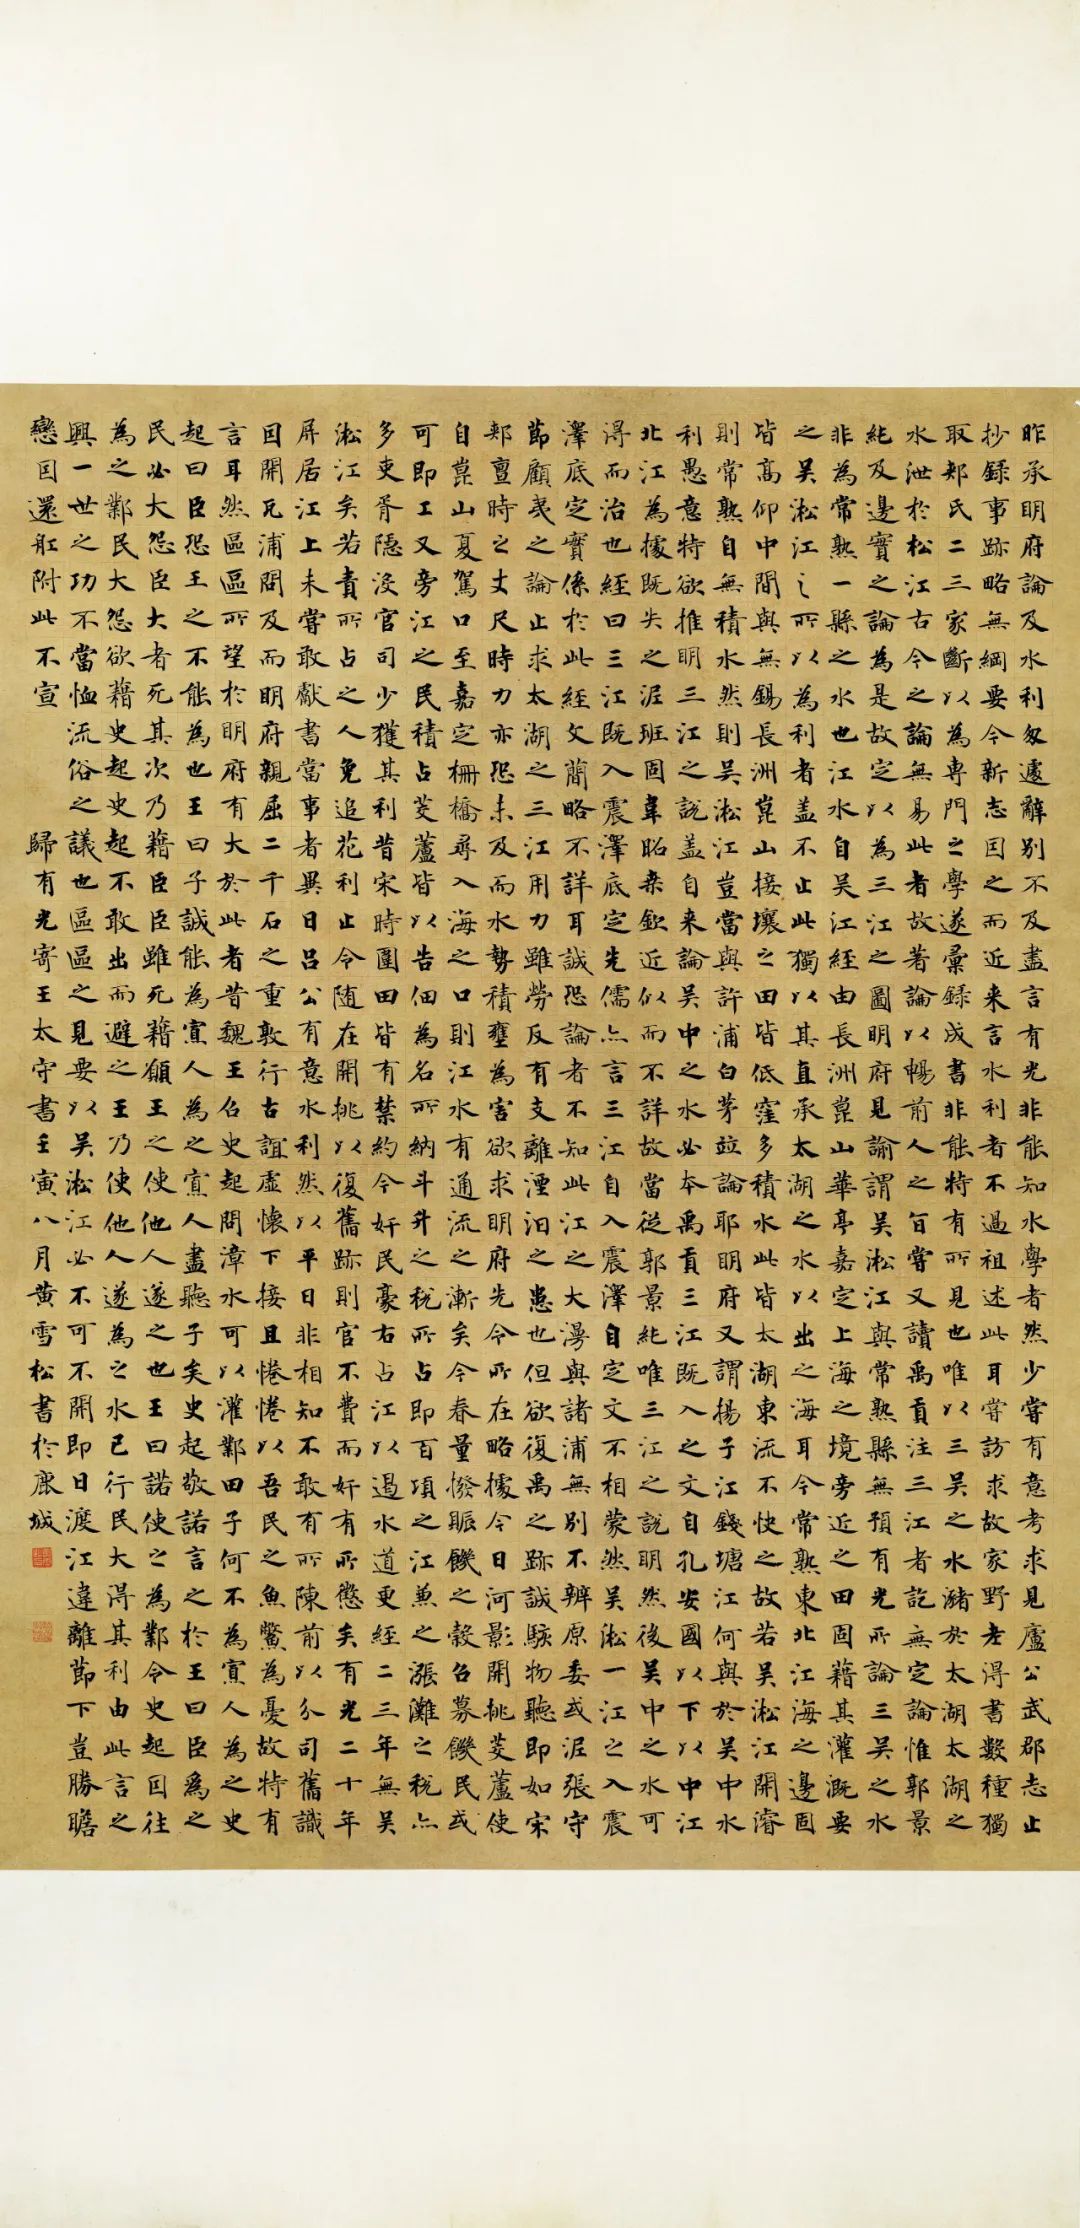 昨承明府論及水利匆遽辭別不及盡言有光非能知水學者然少嘗有意考求見盧公武郡志止
抄録事跡略無綱要今新志因之而近来言水利者不過祖述此耳嘗訪求故家野老得書數種獨
取郟氏二三家斷以為專門之學遂彙録成書非能特有所見也唯以三吳之水瀦於太湖太湖之
水泄於松江古今之論無易此者故著論以暢前人之旨嘗又讀禹貢注三江者訖無定論惟郭景
純及邊實之論為是故定以為三江之圖明府見諭謂吳淞江與常熟縣無預有光所論三吳之水
非為常熟一縣之水也江水自吳江經由長洲崑山華亭嘉定上海之境旁近之田固藉其灌溉要
之吳淞江之所以為利者盖不止此獨以其直承太湖之水以出之海耳今常熟東北江海之邊固
皆高仰中間與無錫長洲崑山接壤之田皆低窪多積水此皆太湖東流不快之故若吳淞江開濬
則常熟自無積水然則吳淞江豈當與許浦白茅竝論耶明府又謂揚子江錢塘江何與於吳中水
利愚意特欲推明三江之說盖自来論吳中之水必本禹貢三江既入之文自孔安國以下以中江
北江為據既失之泥班固韋昭桑欽近似而不詳故當從郭景純唯三江之說明然後吳中之水可
得而治也經曰三江既入震澤底定先儒亦言三江自入震澤自定文不相蒙然吳淞一江之入震
澤底定實係於此經文簡略不詳耳誠恐論者不知此江之大漫與諸浦無別不辨原委或泥張守
節顧夷之論止求太湖之三江用力雖勞反有支離湮汩之患也但欲復禹之跡誠駭物聽即如宋
郟亶時之丈尺時力亦恐未及而水勢積壅為害欲求明府先令所在略據今日河影開挑茭蘆使
自崑山夏駕口至嘉定柵橋尋入海之口則江水有通流之漸矣今春量撥賑饑之穀召募饑民或
可即工又旁江之民積占茭蘆皆以告佃為名所納斗升之稅所占即百頃之江兼之漲灘之稅亦
多吏胥隱沒官司少獲其利昔宋時圍田皆有禁約今奸民豪右占江以遏水道更經二三年無吳
淞江矣若責所占之人免追花利止令随在開挑以復舊跡則官不費而奸有所懲矣有光二十年
屏居江上未嘗敢獻書當事者異日呂公有意水利然以平日非相知不敢有所陳前以分司舊識
因開瓦浦問及而明府親屈二千石之重敦行古誼虛懷下接且惓惓以吾民之魚鱉為憂故特有
言耳然區區所望於明府有大於此者昔魏王召史起問漳水可以灌鄴田子何不為寡人為之史
起曰臣恐王之不能為也王曰子誠能為寡人為之寡人盡聽子矣史起敬諾言之於王曰臣為之
民必大怨臣大者死其次乃藉臣臣雖死藉願王之使他人遂之也王曰諾使之為鄴令史起因往
為之鄴民大怨欲藉史起史起不敢出而避之王乃使他人遂為之水已行民大得其利由此言之
興一世之功不當恤流俗之議也區區之見要以吳淞江必不可不開即日渡江違離節下豈勝瞻
戀因還舡附此不宣 歸有光寄王太守書壬寅八月黃雪松書於鹿城